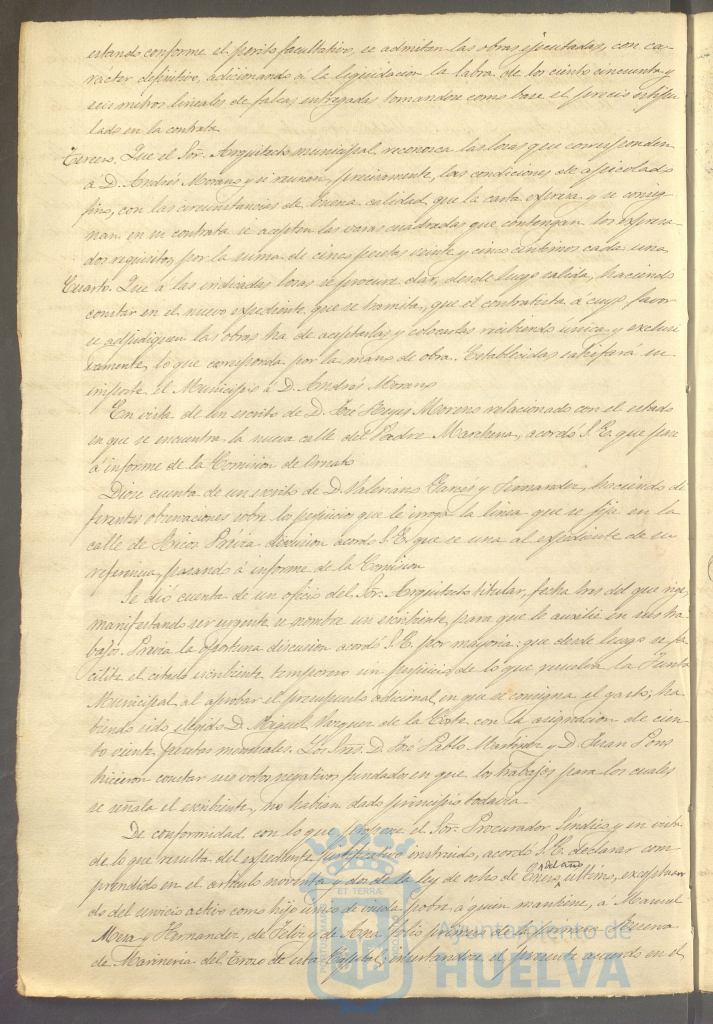 estando conforme el perito facultativo, se admitan las obras ejecutadas, con ca-
rácter definitivo, adicionando á la liquidacion la labra de los ciento cincuenta y
seis metros lineales de falcas entregadas tomandose como base el precio estipu-
lado en la contrata.
Tercero. Que el Sor. Arquitecto municipal reconosca las losas que corresponden
á D. Andrés Morano y si reunen, precisamente, las condiciones de apiculado
fino, con las circunstancias de buena calidad, que la carta expresa y se consig-
nan en su contrata se acepten las varas cuadradas que contengan los expresa-
dos requisitos, por la suma de cinco pesetas veinte y cinco centimos cada una.
Cuarto. Que á las indicadas losas se procure dar, desde luego salida, haciendo
constar en el nuevo expediente que se tramita, que el contratista á cuyo favor
se adjudiquen las obras ha de aceptarlas y colocarlas recibiendo unica y exclusi-
vamente lo que corresponda por la mano de obra. Establecidas satisfará su
importe el Municipio á D. Andrés Morano
En vista de un escrito de D. José Reyes Moreno relacionado con el estado
en que se encuentra la nueva calle del Padre Marchena, acordó S. E. que pase
á informe de la Comision de Ornato
Diose cuenta de un escrito de D. Valeriano Garcés y Fernandez, haciendo di-
ferentes observaciones sobre los perjuicios que le irroga la linea que se fija en la
calle de Ricos. Prévia discusion acordó S. E. que se una al expediente de su
referencia, pasando á informe de la Comision
Se dió cuenta de un oficio del Sor. Arquitecto titular, fecha tres del que rige,
manifestando ser urgente se nombre un escribiente, para que le auxilie en sus tra-
bajos. Prévia la oportuna discusion acordó S. E. por mayoria: que desde luego se fa-
cilite el citado escribiente temporero sin perjuicio de lo que resuelva la Junta
Municipal al aprobar el presupuesto adicional en que se consigna el gasto; ha-
biendo sido elegido D. Miguel Vazquez de la Corte con la asignacion de cien-
to veinte pesetas mensuales. Los Sres. D. José Pablo Martinez y D. Juan Pons
hicieron constar sus votos negativos fundados en que los trabajos para los cuales
se señala el escribiente, no habian dado principio todavia.
De conformidad con lo que propone el Sor. Procurador Síndico y en vista
de lo que resulta del expediente justificativo instruido, acordó S. E. declarar com-
prendido en el artículo noventa y dos de la ley de ocho de Enero del año último, exceptuan-
do del servicio activo como hijo único de viuda pobre á quien mantiene, á Manuel
Mora y Hernandez, de Felix y de Ana folio primero del alistamiento Reserva
de Marineria del Trozo de esta Capital: insertandose el presente acuerdo en el
Ayuntamiento de
HUELVA